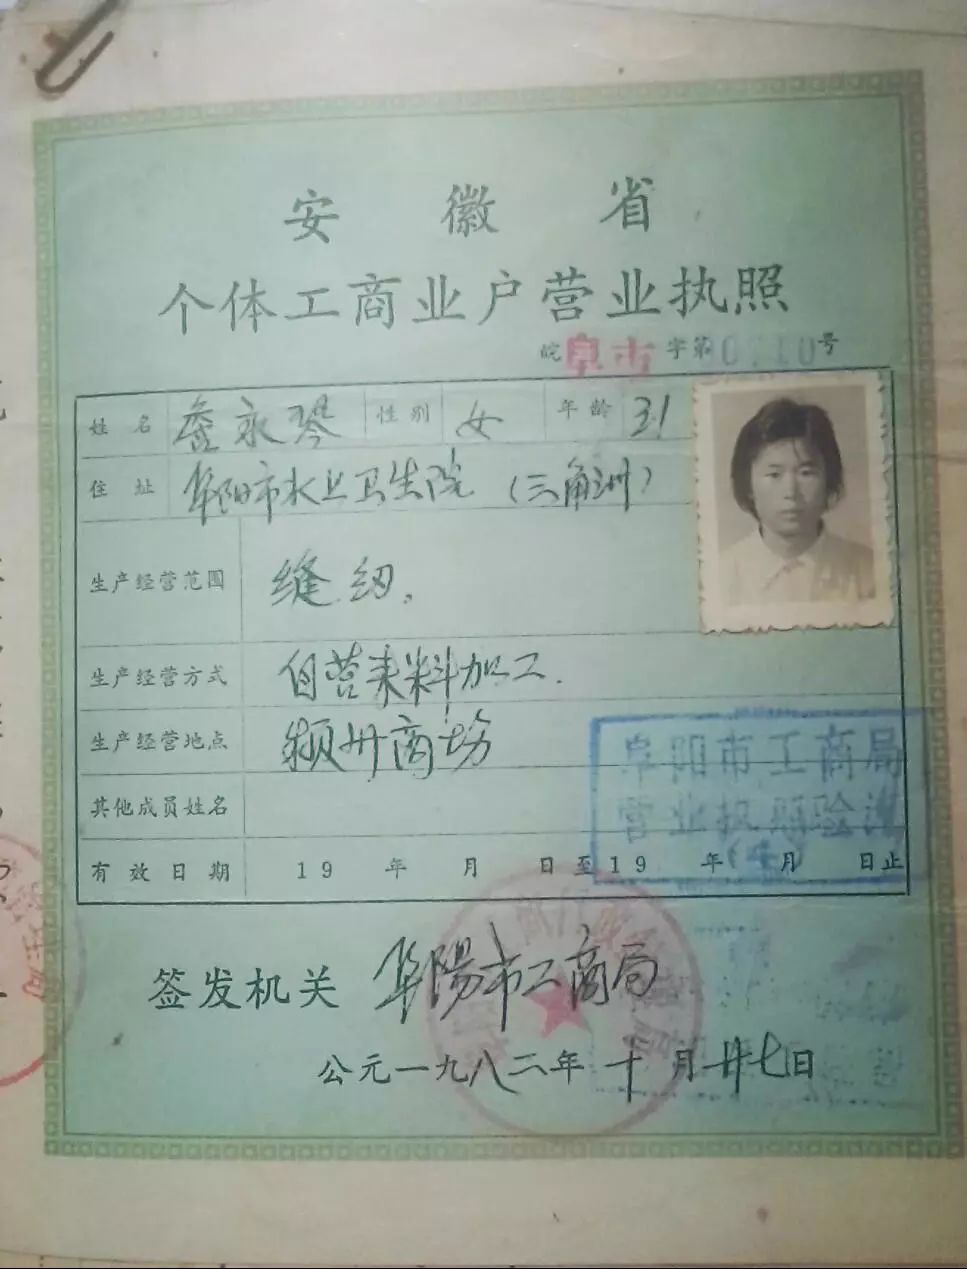 安徽省
个体工商业户营业执照
皖阜市字第0710号
姓名 永琴 性别 女 年龄 31
住址 阜阳市水上卫生院（三角洲）
生产经营范围 缝纫.
生产经营方式 自营来料加工.
生产经营地点 颍州商场
其他成员姓名
有效日期 19 年 月 日至19 年 月 日止
阜阳市工商局
营业执照验
签发机关 阜陽市工商局
公元一九八二年十月廿七日